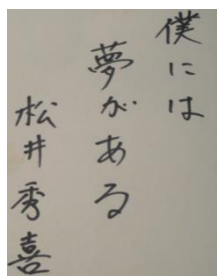 僕には
夢がある
松井秀喜